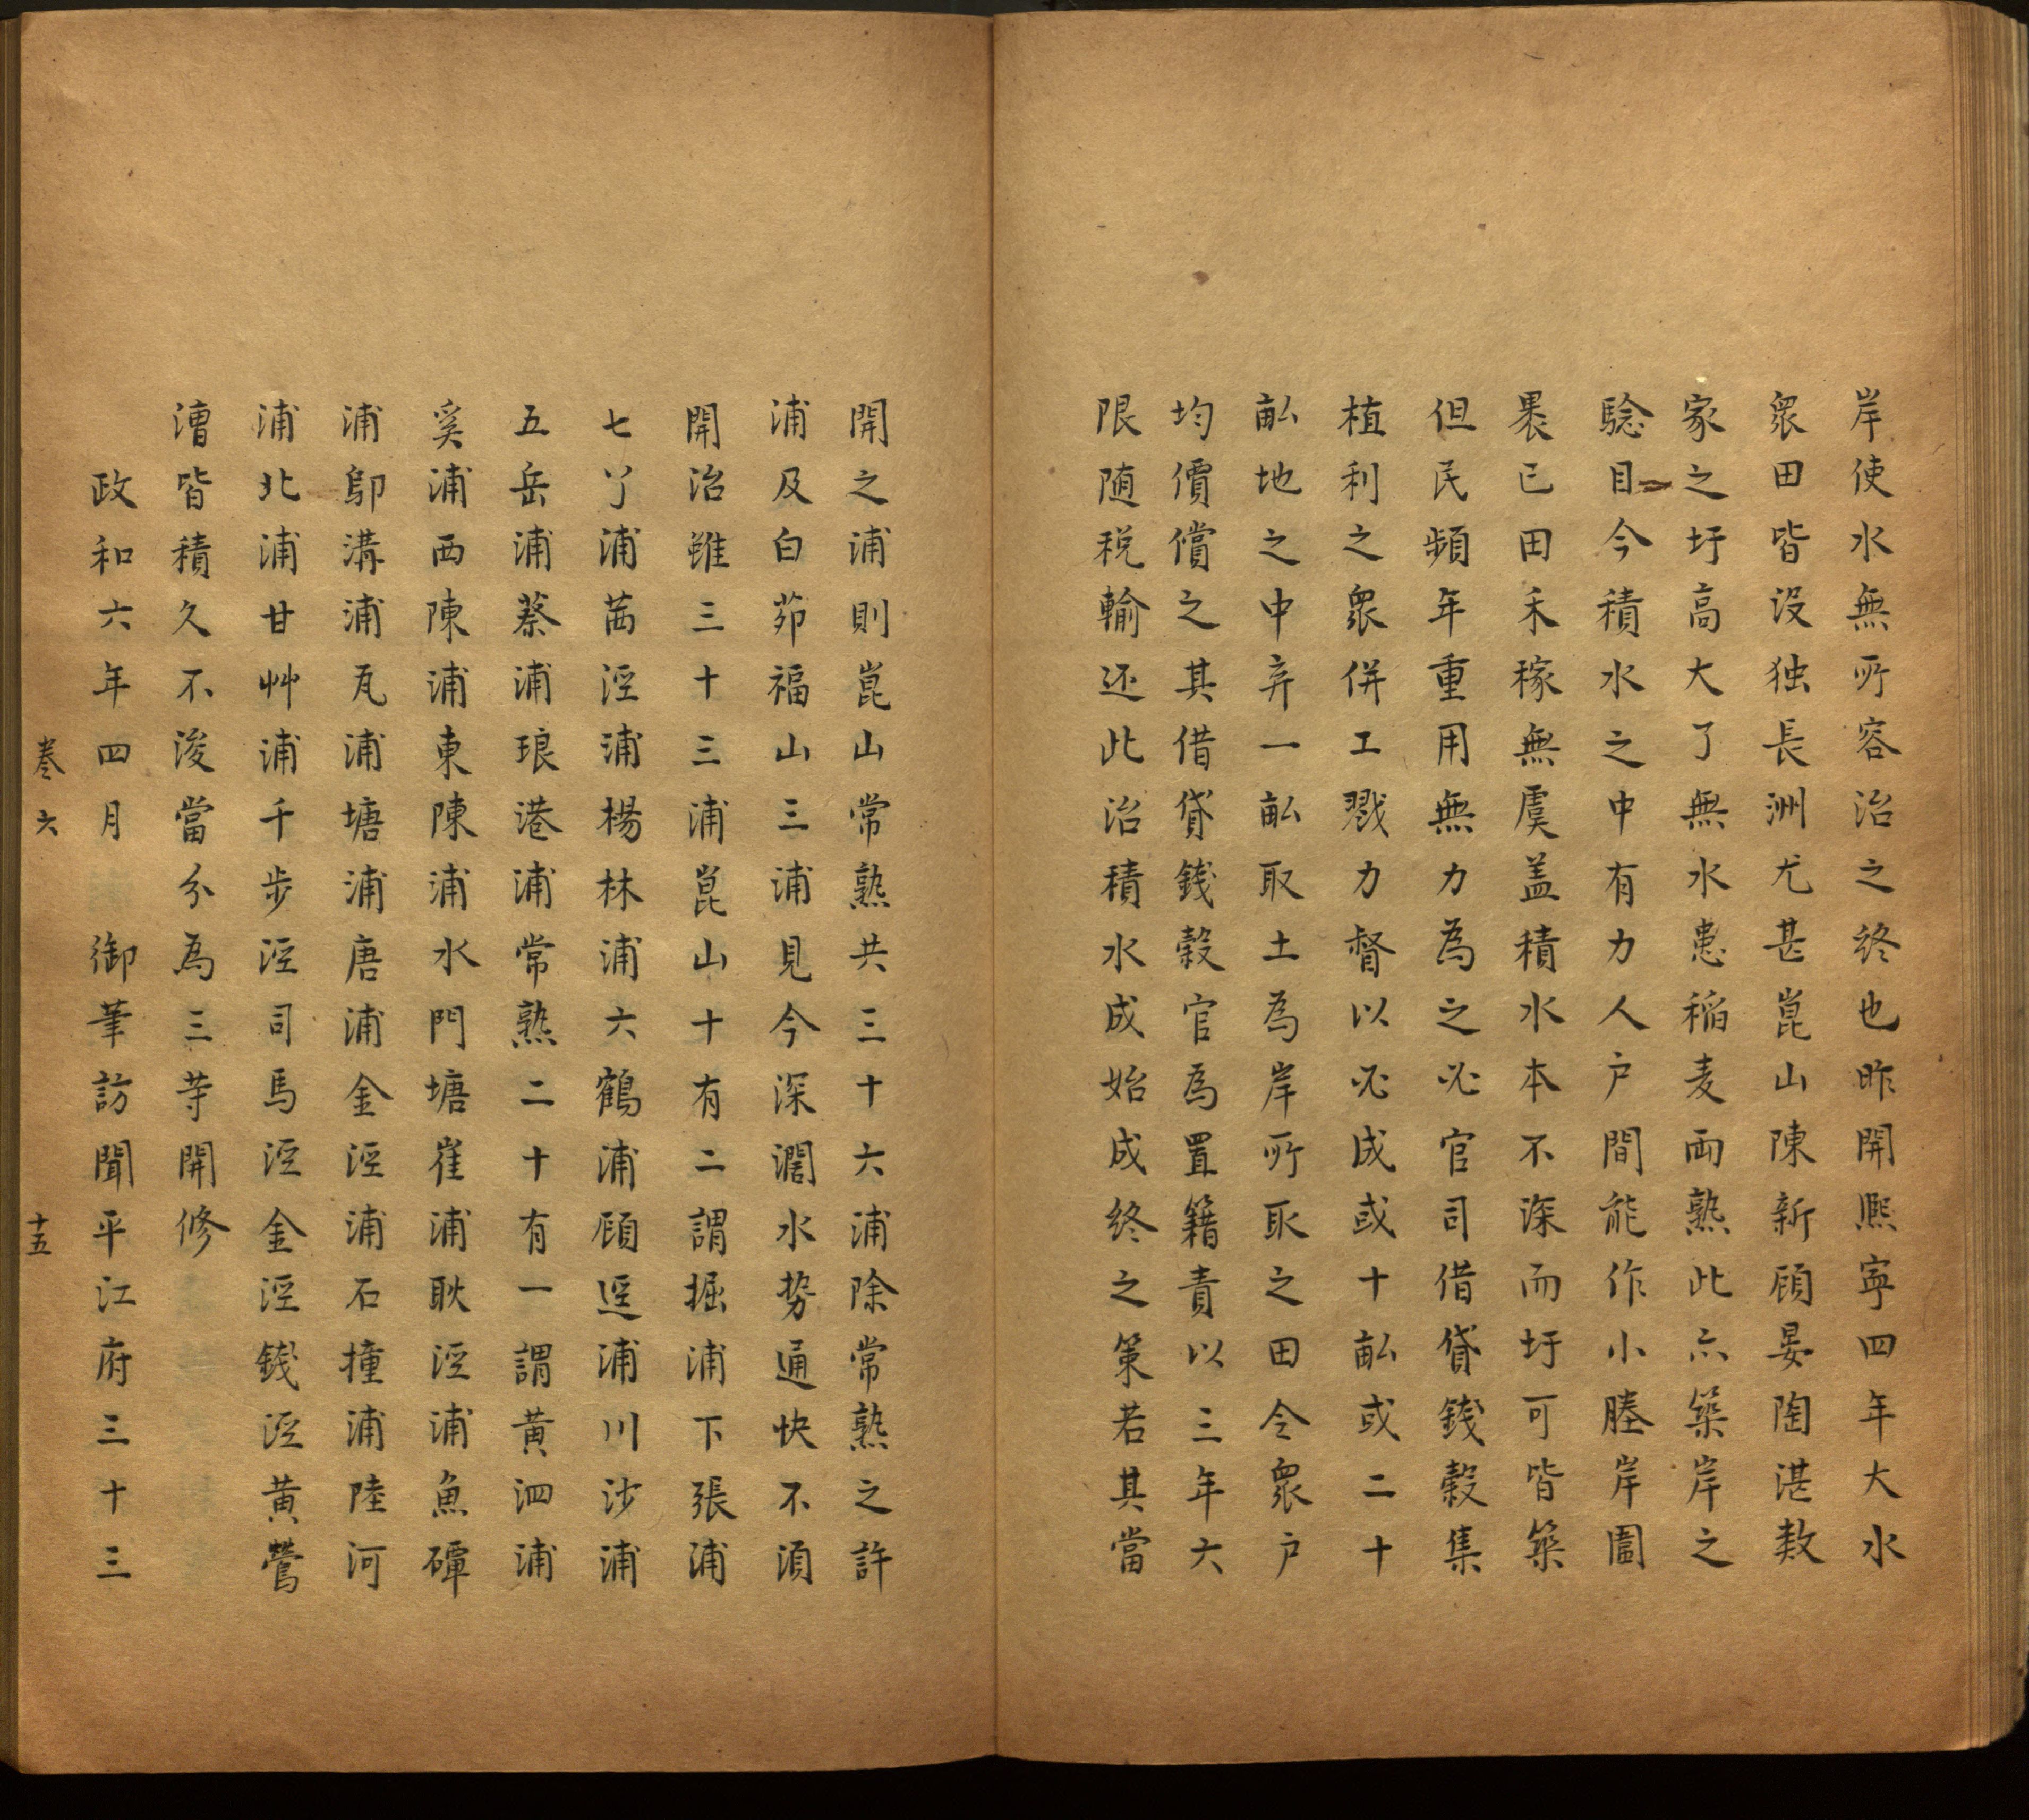 岸使水無所容治之終也昨開熈寧四年大水
衆田皆没独長洲尤甚崑山陳新顧晏陶湛数
家之圩高大了無水患稲麦兩熟此亦築岸之
驗目今積水之中有力人户間能作小塍岸圍
褁已田禾稼無虞盖積水本不深而圩可皆築
但民頻年重用無力為之必官司借貸錢穀集
植利之衆併工戮力督以必成或十畝或二十
畝地之中弃一畝取土為岸所取之田令衆户
均價償之其借貸錢穀官為置籍責以三年六
限随税輸还此治積水成始成終之策若其當
開之浦則崑山常熟共三十六浦除常熟之許
浦及白茆福山三浦見今深濶水势通快不湏
開治雖三十三浦崑山十有二謂掘浦下張浦
七丫浦茜涇浦楊林浦六鶴浦顧逕浦川沙浦
五岳浦蔡浦琅港浦常熟二十有一謂黄泗浦
奚浦西陳浦東陳浦水門塘崔浦耿涇浦魚磹
浦鄔溝浦瓦浦塘浦唐浦金涇浦石撞浦陸河
浦北浦甘艸浦千步涇司馬涇金涇錢涇黄鶯
漕皆積久不浚當分為三䓁開修
政和六年四月　御筆訪聞平江府三十三
卷六
十五